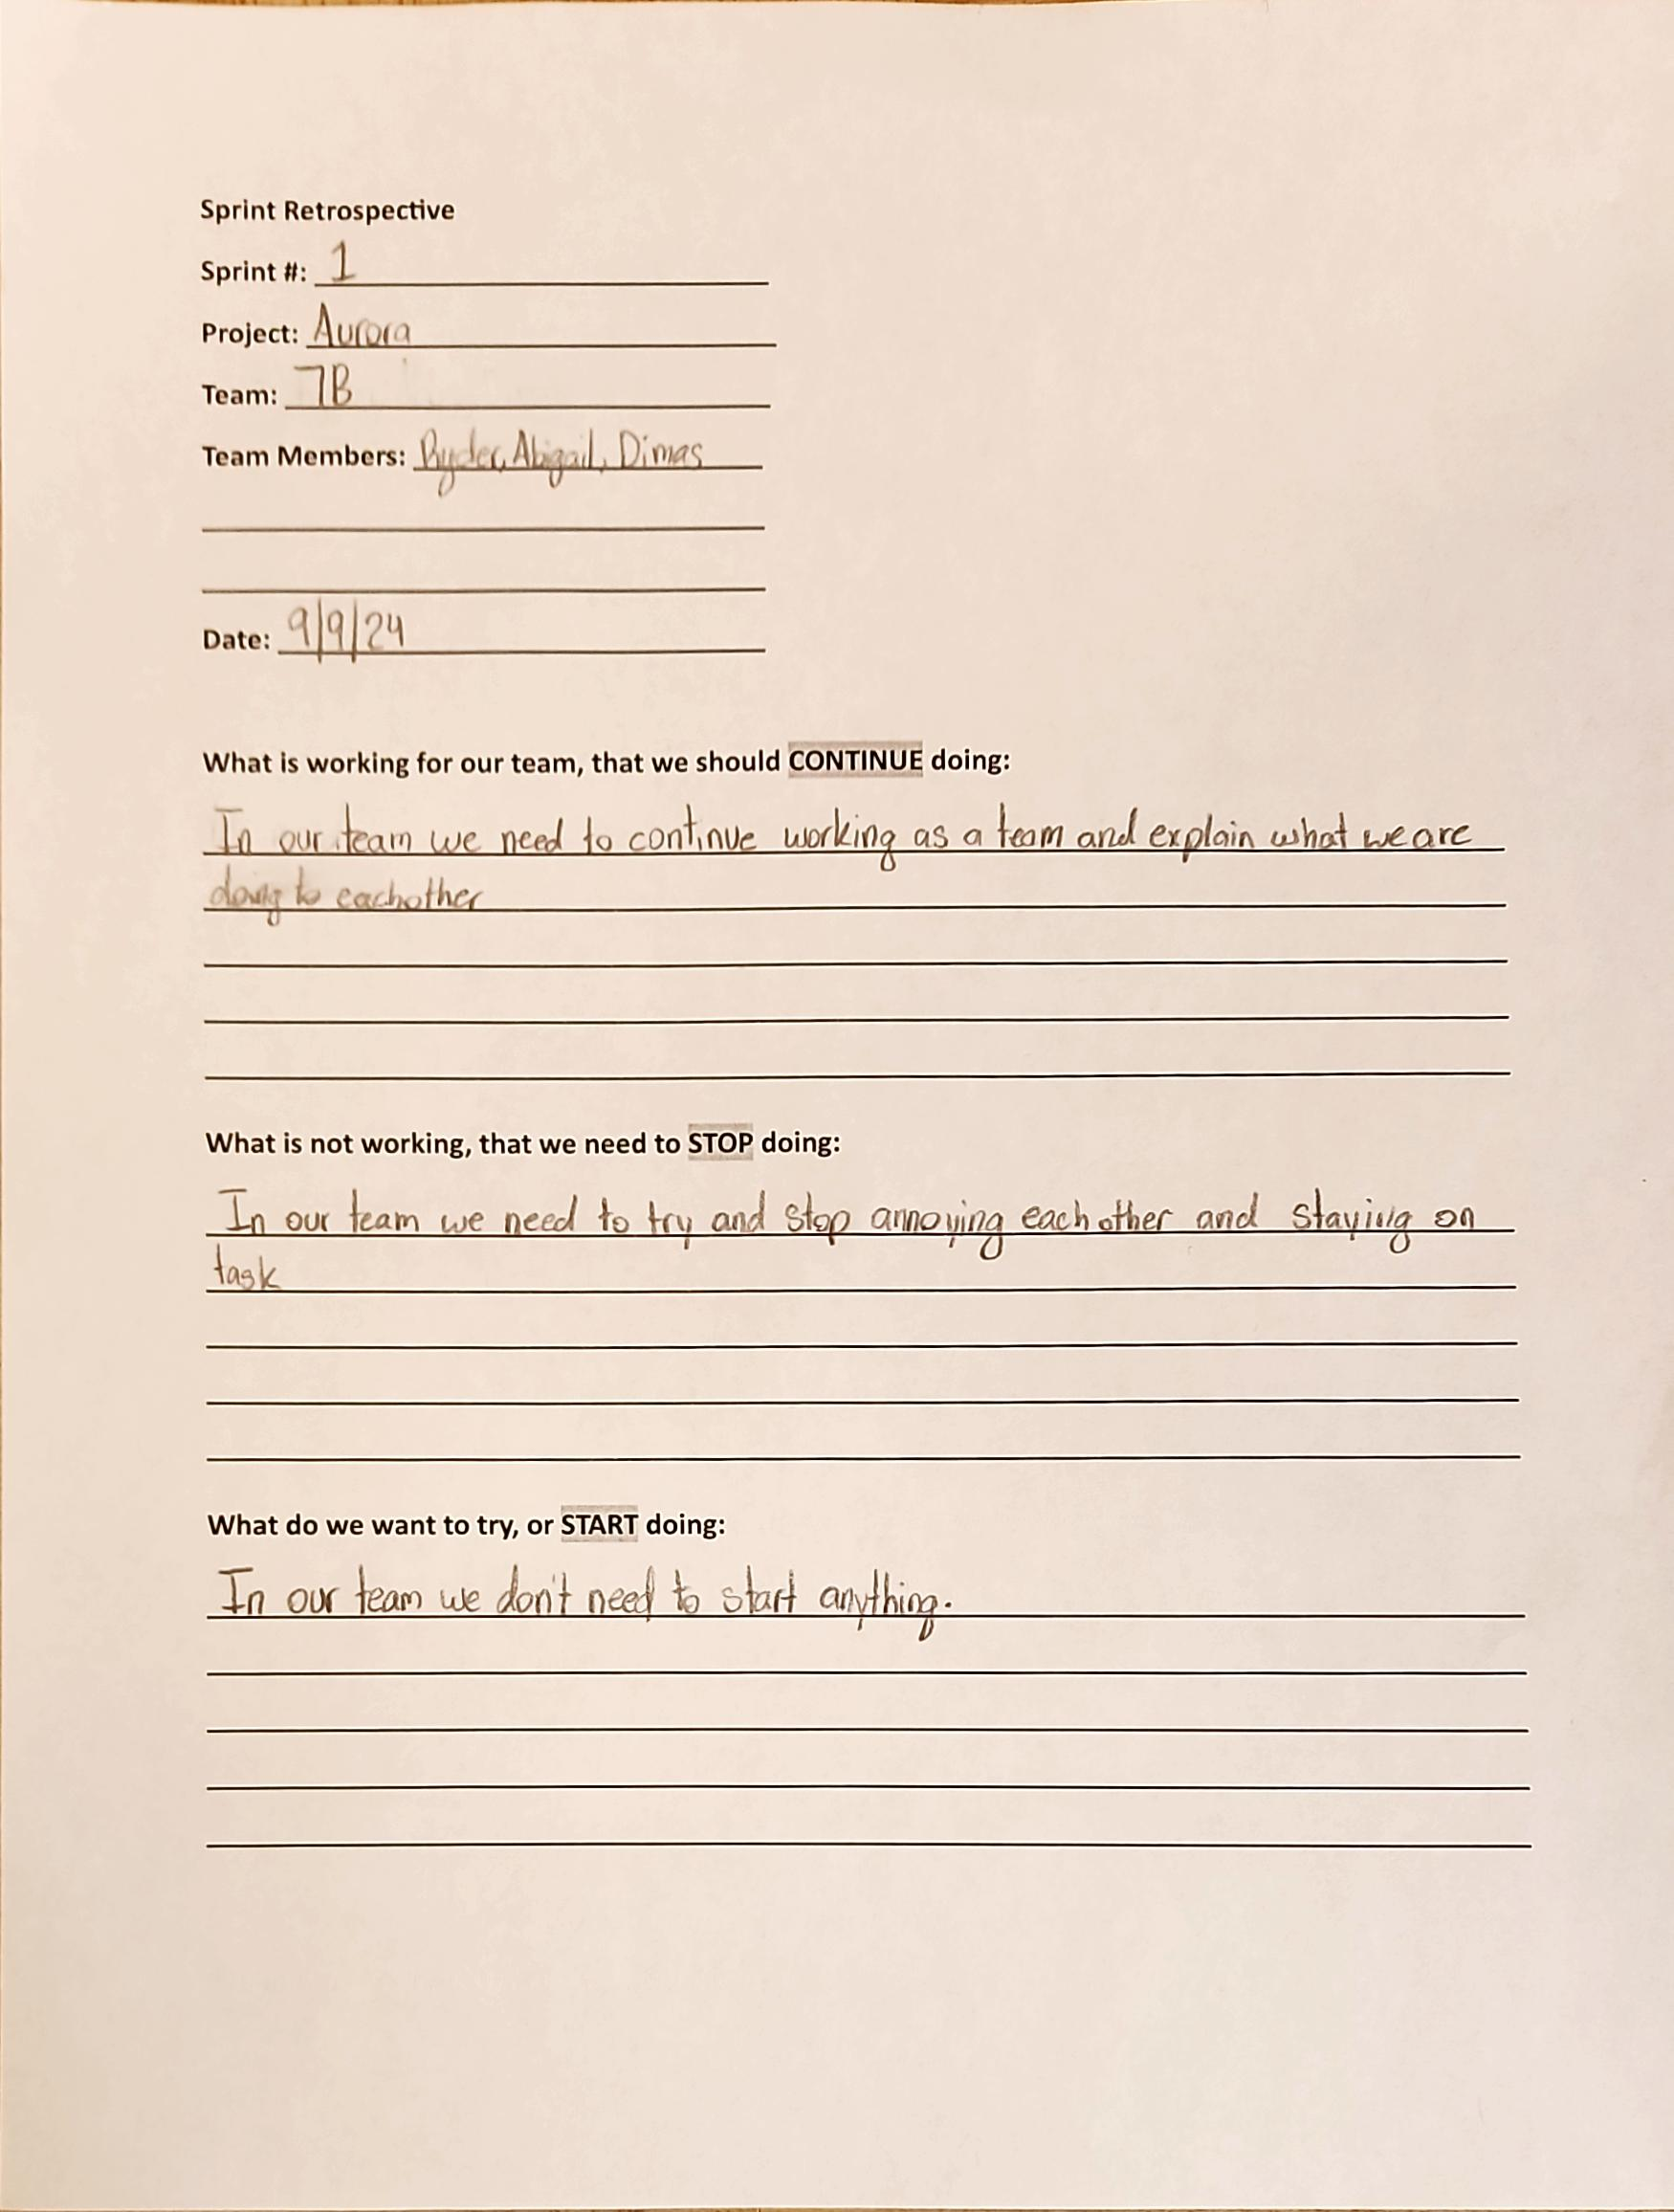 Sprint Retrospective
Sprint #: 1
Project: Aurora
Team: 7B
Team Members: Ryder, Abigail, Dimas
Date: 9/9/24
What is working for our team, that we should CONTINUE doing:
In our team we need to continue working as a team and explain what we are
doing to eachother
What is not working, that we need to STOP doing:
In our team we need to try and stop annoying each other and staying on
task
What do we want to try, or START doing:
In our team we don't need to start anything.